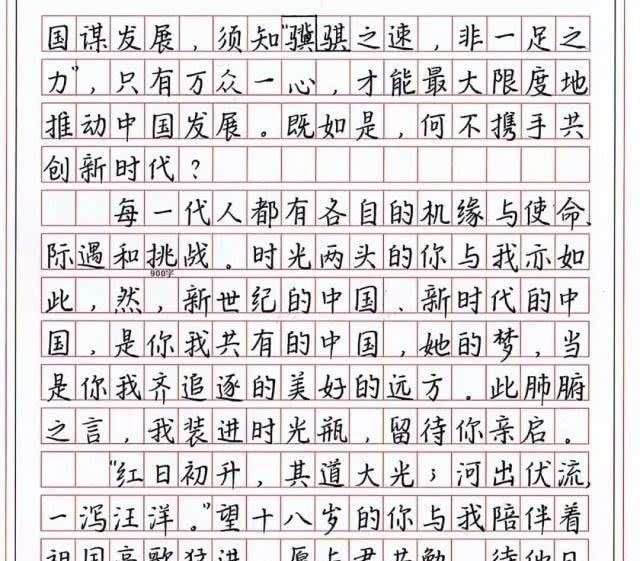 国谋发展，须知“骥骐之速，非一足之
力”，只有万众一心，才能最大限度地
推动中国发展。既如是，何不携手共
创新时代？
每一代人都有各自的机缘与使命、
际遇和挑战。时光两头的你与我亦如
900字
此，然，新世纪的中国、新时代的中
国，是你我共有的中国，她的梦，当
是你我齐追逐的美好的远方。此肺腑
之言，我装进时光瓶，留待你亲启。
“红日初升，其道大光；河出伏流，
一泻汪洋。”望十八岁的你与我陪伴着
祖国高歌猛进，愿与君共勉，待他日